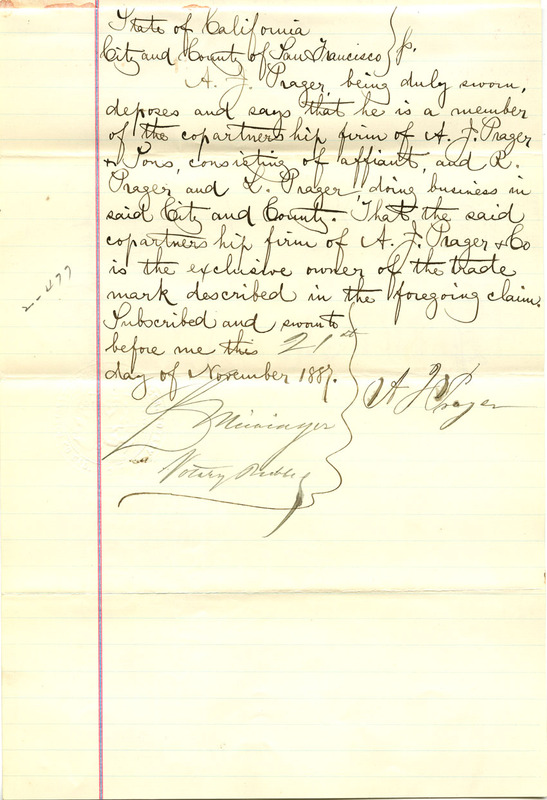 State of California
City and County of San Francisco } ss.
A. J. Prager, being duly sworn,
deposes and says that he is a member
of the copartnership firm of A. J. Prager
& Sons, consisting of affiant, and R.
Prager and L. Prager, doing business in
said City and County. That the said
copartnership firm of A. J. Prager & Co
is the exclusive owner of the trade
mark described in the foregoing claim.
Subscribed and sworn to
before me this 21st
day of November 1887.
A J Prager
Notary Public
2-477